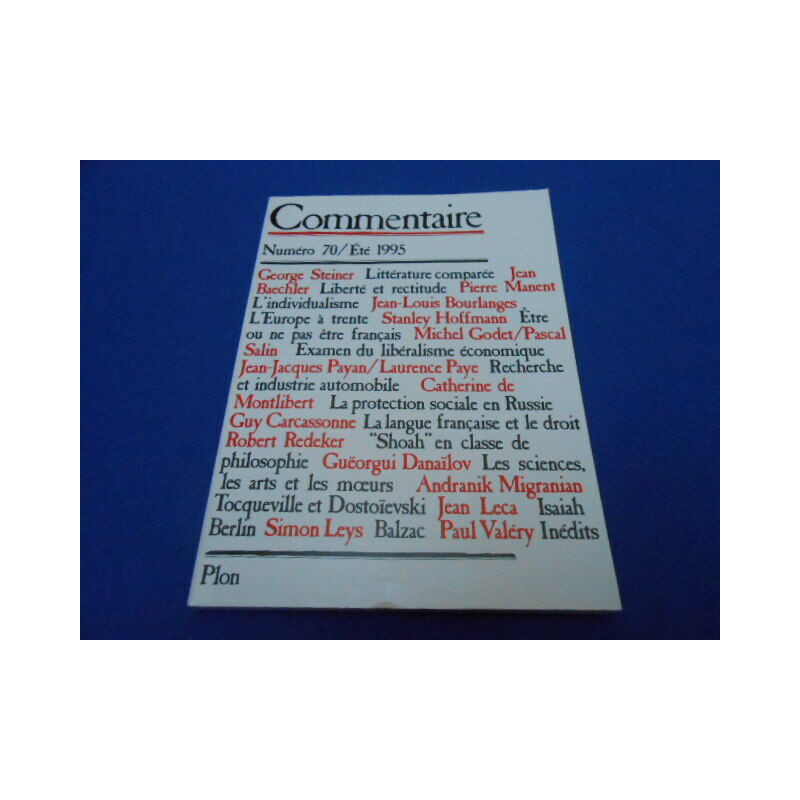 Commentaire
Numéro 70/Été 1995
George Steiner Littérature comparée Jean
Baechler Liberté et rectitude Pierre Manent
L'individualisme Jean-Louis Bourlanges
L'Europe à trente Stanley Hoffmann Être
ou ne pas être français Michel Godet/Pascal
Salin Examen du libéralisme économique
Jean-Jacques Payan/Laurence Paye Recherche
et industrie automobile Catherine de
Montlibert La protection sociale en Russie
Guy Carcassonne La langue française et le droit
Robert Redeker "Shoah" en classe de
philosophie Guëorgui Danaïlov Les sciences,
les arts et les mœurs Andranik Migranian
Tocqueville et Dostoïevski Jean Leca Isaiah
Berlin Simon Leys Balzac Paul Valéry Inédits
Plon